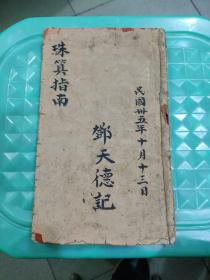 民國卅五年十月十三日
珠算指南
鄧天德記